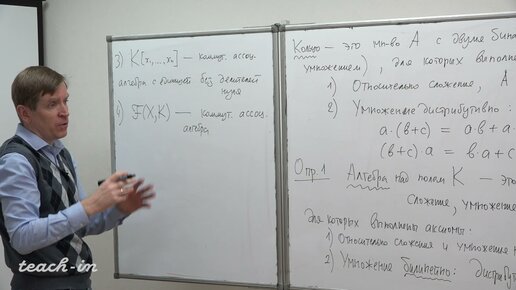 3) K[x₁,...,xₙ] — коммут. ассоц.
алгебра с единицей без делителей
нуля
4) F(X,K) — коммут. ассоц.
алгебра
Кольцо — это мн-во A с двумя бина
умножением), для которых выполне
1) Относительно сложения, A
2) Умножение дистрибутивно:
a·(b+c) = a·b + a·
(b+c)·a = b·a + c
Опр.1 Алгебра над полем K — это
сложение, умножение
для которых выполнены аксиомы:
1) Относительно сложения и умножения н
2) Умножение билинейно: дистрибут
teach-in